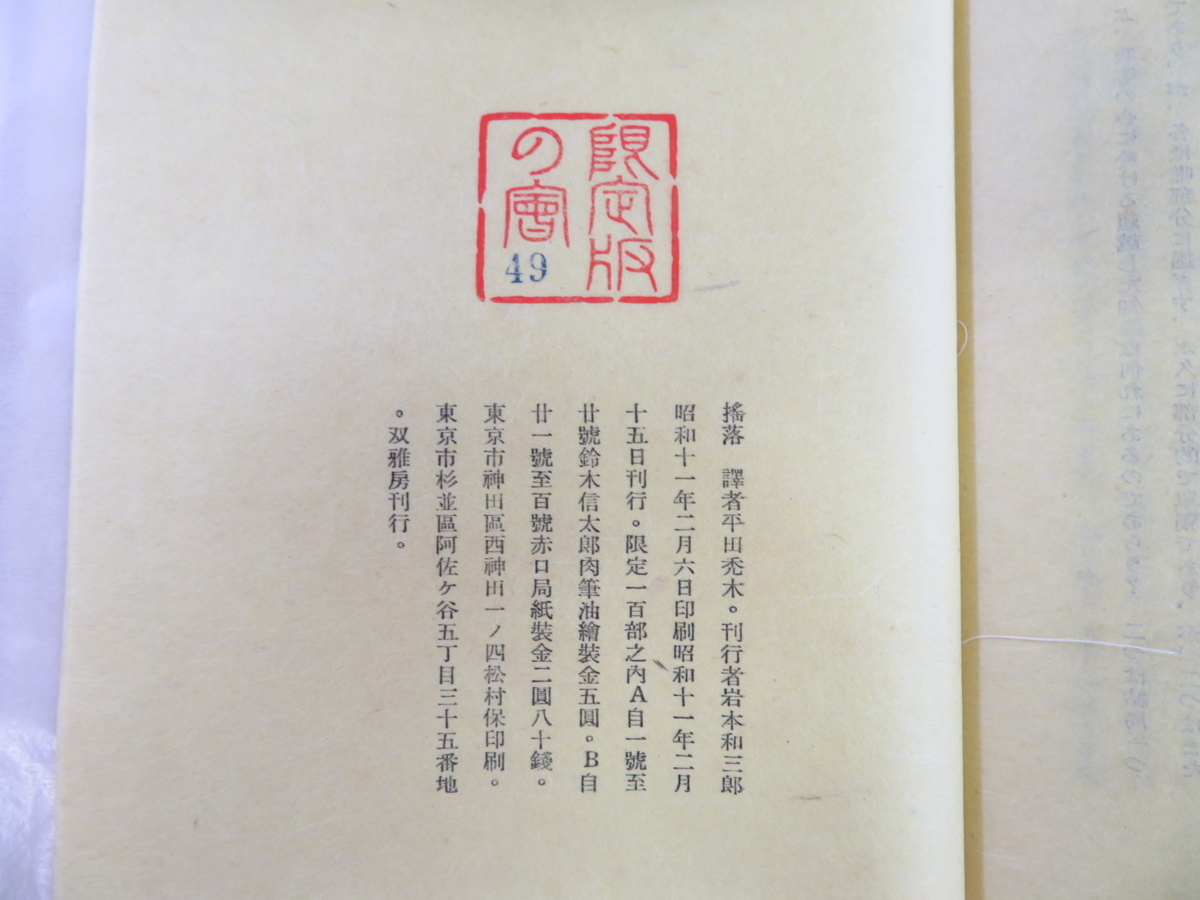 限定版
の會
49
搖落　譯者平田禿木。刊行者岩本和三郎
昭和十一年二月六日印刷昭和十一年二月
十五日刊行。限定一百部之內A自一號至
廿號鈴木信太郎肉筆油繪裝金五圓。B自
廿一號至百號赤口局紙裝金二圓八十錢。
東京市神田區西神田一ノ四松村保印刷。
東京市杉並區阿佐ケ谷五丁目三十五番地
。双雅房刊行。